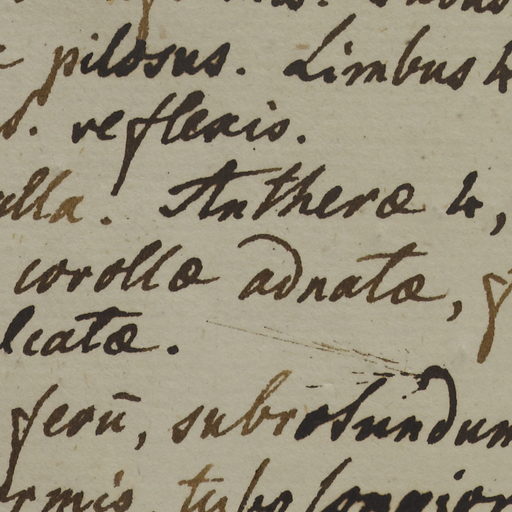 pilosus. Limbus 4
reflexis.
ulla. Antheræ 4,
corollæ adnatæ,
lcatæ.
ferū, subrotundum
tubo longior